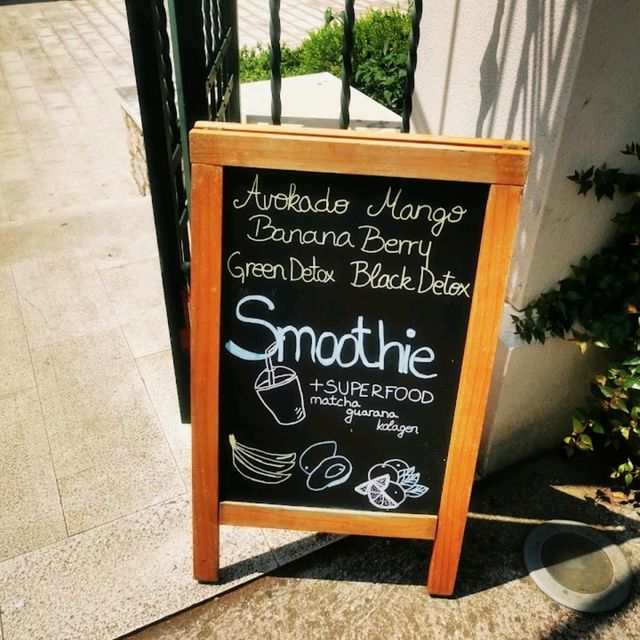 Avokado Mango
Banana Berry
Green Detox Black Detox
Smoothie
+SUPERFOOD
matcha
guarana
kolagen